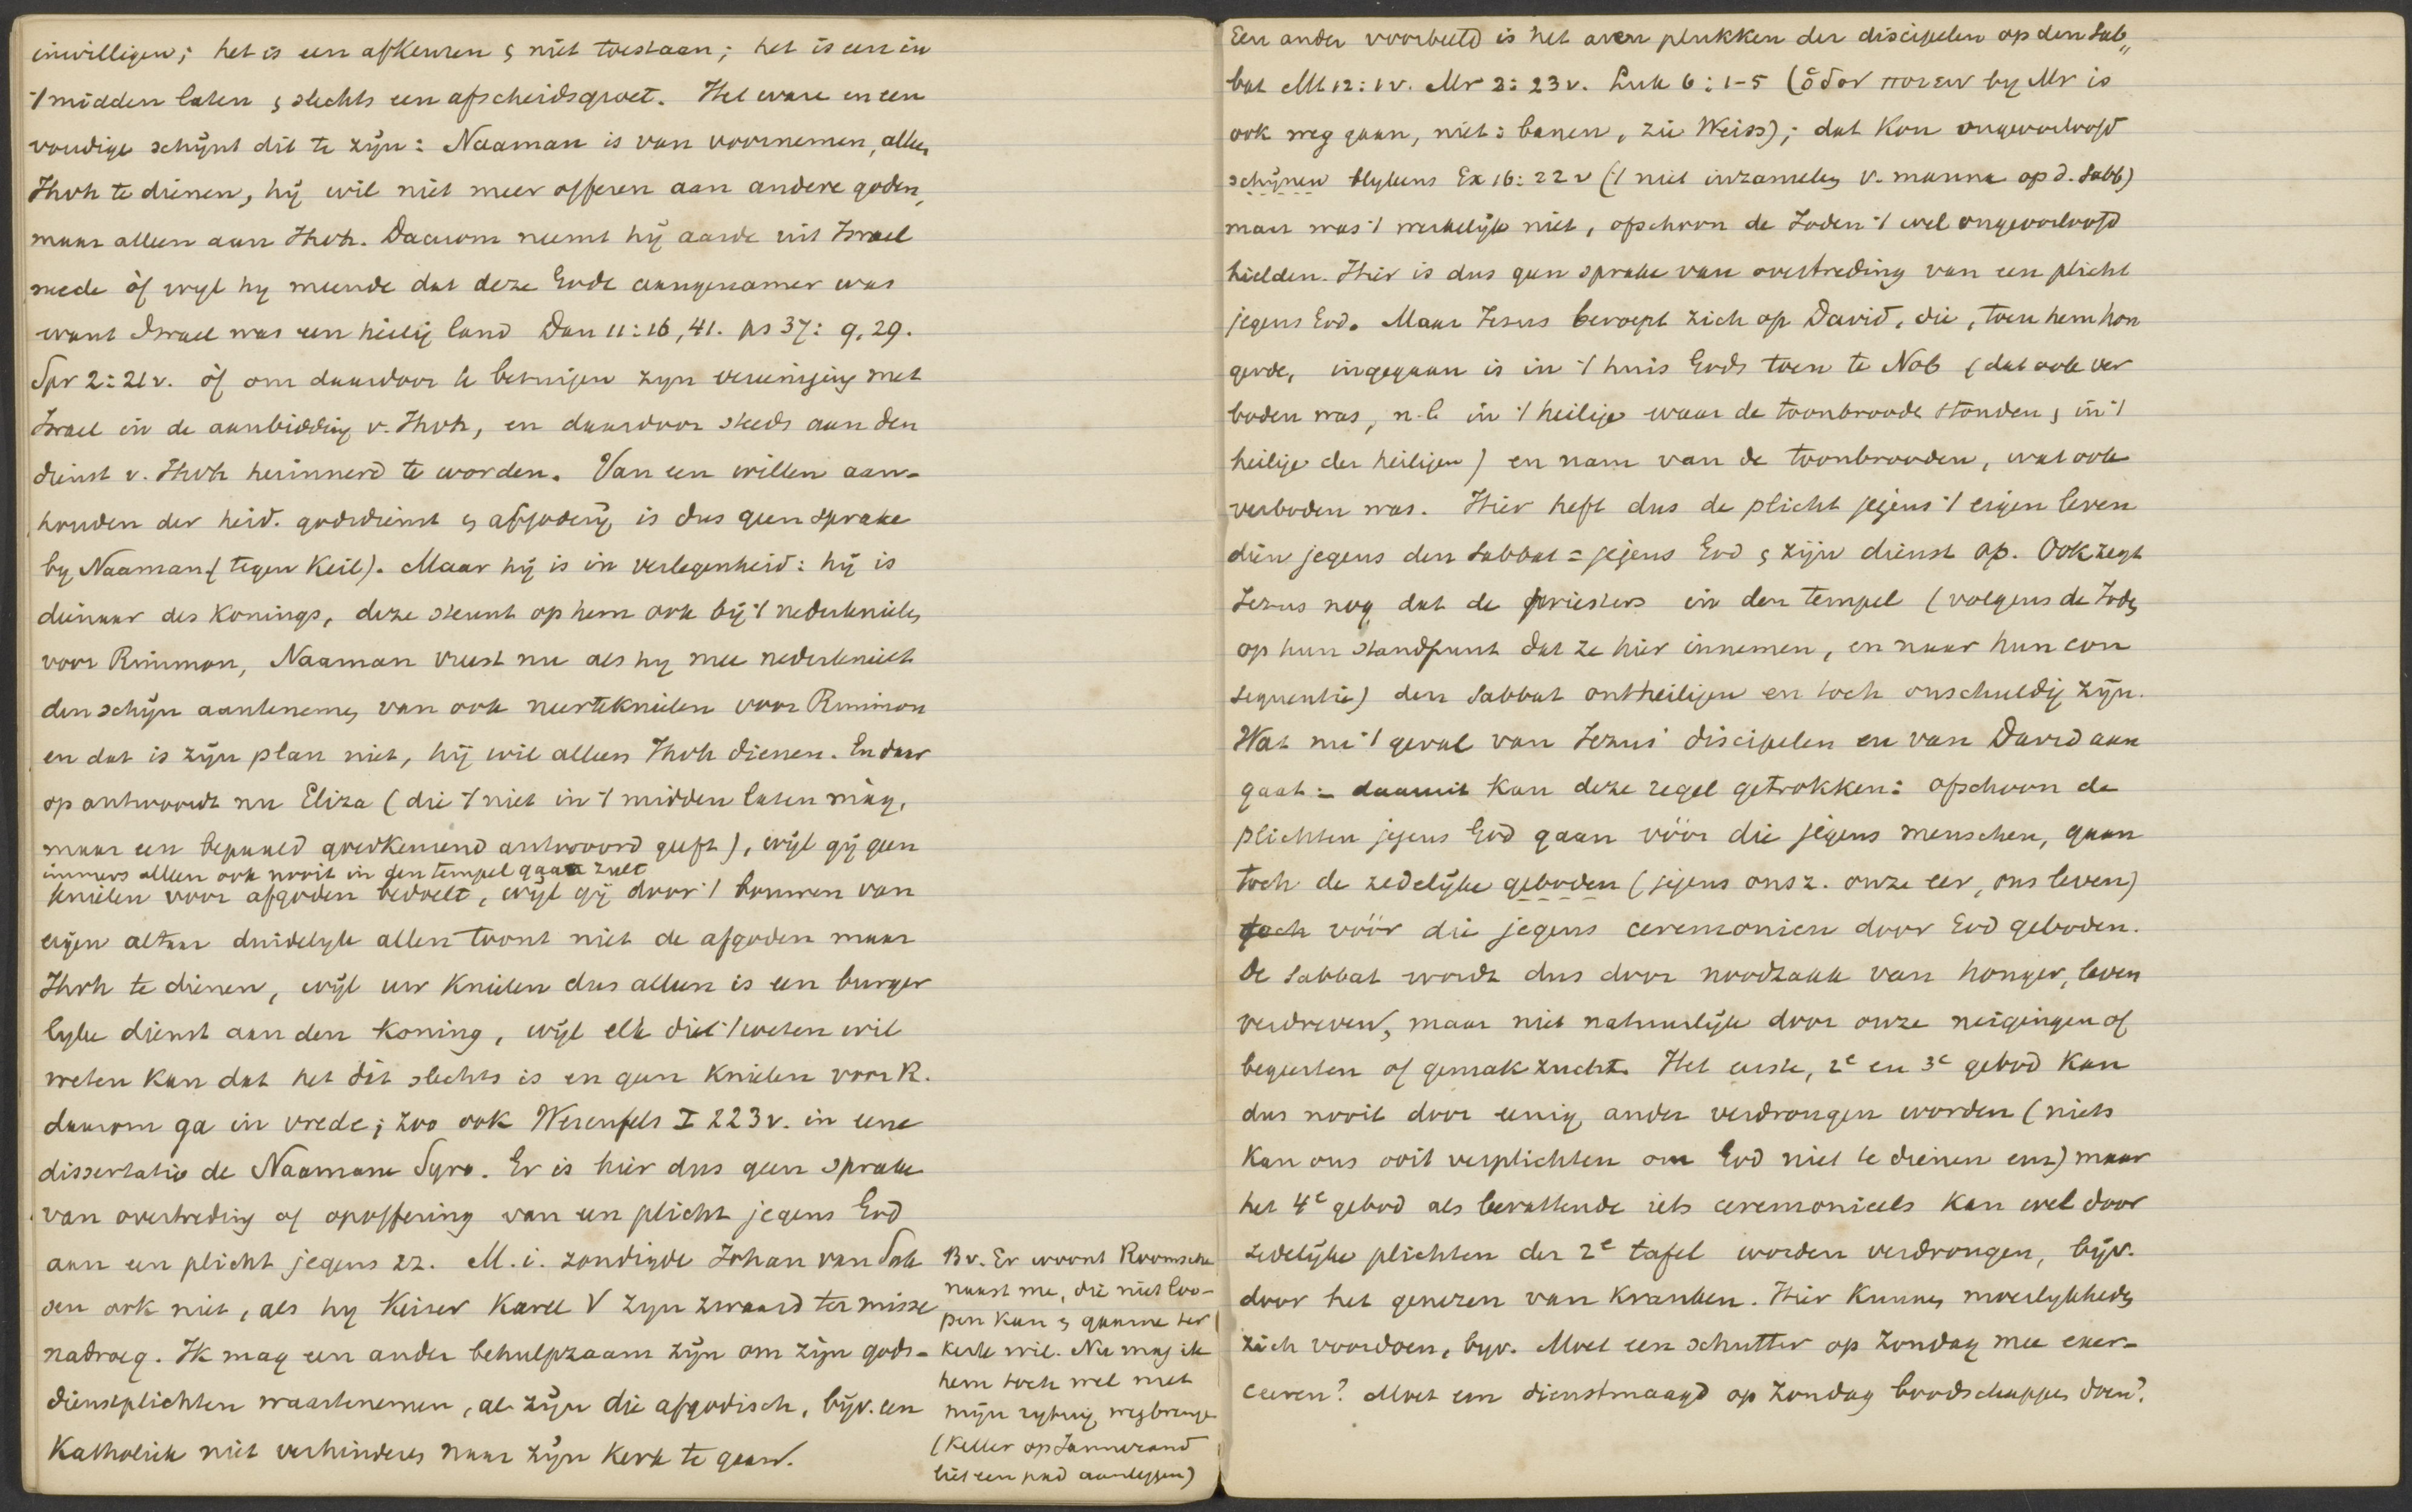 inwilligen; het is een afkeuren & niet toestaan; het is een in
't midden laten & slechts een afscheidsgroet. Het ware en een
voudige schijnt dit te zijn: Naaman is van voornemen, alleen
Jhvh te dienen, hij wil niet meer offeren aan andere goden,
maar alleen aan Jhvh. Daarom neemt hij aarde uit Israel
mede òf wyl hy meende dat deze Gode aangenamer was
want Israel was een heilig land Dan 11:16, 41. ps 37: 9, 29.
Spr 2:21v. òf om daardoor te betuigen zyn vereeniging met
Israel in de aanbidding v. Jhvh, en daardoor steeds aan den
dienst v. Jhvh herinnerd te worden. Van een willen aan-
houden der heid. godsdienst & afgoderij is dus geen sprake
by Naaman (tegen Keil). Maar hij is in verlegenheid: hij is
dienaar des Konings, deze steunt op hem ook bij 't nederknielen
voor Rimmon, Naaman vreest nu als hy mee nederknielt
den schijn aantenemen van ook neerteknielen voor Rimmon
en dat is zijn plan niet, hij wil alleen Jhvh dienen. En daar
op antwoordt nu Eliza (die 't niet in 't midden laten mag,
maar een bepaald goedkeurend antwoord geeft), wijl gij geen
immers alleen ook nooit in den tempel gaan zult
knielen voor afgoden bedoelt, wijl gij door 't bouwen van
eigen altaar duidelyk allen toont niet de afgoden maar
Jhvh te dienen, wijl uw knielen dus alleen is een burger
lyke dienst aan den Koning, wijl elk die 't weten wil
weten kan dat het dit slechts is en geen knielen voor R.
daarom ga in vrede; zoo ook Werenfels I 223v. in eene
dissertatio de Naamane Syro. Er is hier dus geen sprake
van overtreding of opoffering van een plicht jegens God
aan een plicht jegens zz. M. i. zondigde Johan van Sak
sen ook niet, als hy Keizer Karel V zyn zwaard ter misse
nadroeg. Ik mag een ander behulpzaam zijn om zijn gods-
dienstplichten waartenemen, al zijn die afgodisch, bijv. een
Katholiek niet verhinderen naar zijn kerk te gaan.
Bv. Er woont Roomsche
naast me, die niet loo-
pen kan & gaarne ter
kerke wil. Nu mag ik
hem toch wel met
mijn rytuig wegbrengen
(Keller op
liet een pad aanleggen)
Een ander voorbeeld is het aren plukken der discipelen op den Sab"
bat Mt 12: 1v. Mr 2: 23v. Luk 6: 1-5 (ὁδον ποιειν by Mr is
ook weg gaan, niet: banen, zie Weiss); dat kon ongeoorloofd
schijnen blykens Ex 16: 22v ('t niet inzamelen v. manna op d. Sabb)
maar was 't werkelijk niet, ofschoon de Joden 't wel ongeoorloofd
hielden. Hier is dus geen sprake van overtreding van een plicht
jegens God. Maar Jesus beroept zich op David, die, toen hem hon
gerde, ingegaan is in 't huis Gods toen te Nob (dat ook ver
boden was, n.l. in 't heilige waar de toonbrooden stonden & in 't
heilige der heiligen) en nam van de toonbrooden, wat ook
verboden was. Hier heft dus de plicht jegens 't eigen leven
die jegens den Sabbat = jegens God & zijn dienst op. Ook zegt
Jezus nog dat de priesters in den tempel (volgens de Joden
op hun standpunt dat ze hier innemen, en naar hun con
sequentie) den Sabbat ontheiligen en toch onschuldig zijn.
Wat nu 't geval van Jezus' discipelen en van David aan
gaat: daaruit kan deze regel getrokken: ofschoon de
plichten jegens God gaan vóór die jegens menschen, gaan
toch de zedelijke geboden (jegens onsz. onze eer, ons leven)
toch vóór die jegens ceremonien door God geboden.
De Sabbat wordt dus door noodzaak van honger, leven
verdreven, maar niet natuurlijk door onze neigingen of
begeerten of gemakzucht. Het eerste, 2e en 3e gebod kan
dus nooit door eenig ander verdrongen worden (niets
kan ons ooit verplichten om God niet te dienen enz) maar
het 4e gebod als bevattende iets ceremonieels kan wel door
zedelijke plichten der 2e tafel worden verdrongen, bijv.
door het genezen van kranken. Hier kunnen moeilykheden
zich voordoen, byv. Moet een schutter op Zondag mee exer-
ceeren? Moet een dienstmaagd op Zondag boodschappen doen?